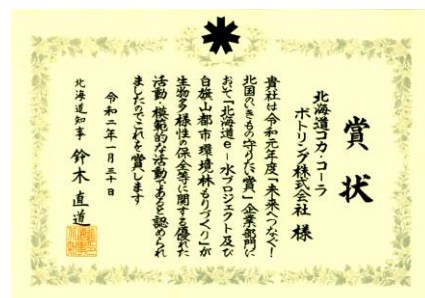 賞状
北海道コカ・コーラ
ボトリング株式会社 様
貴社は令和元年度「未来へつなぐ！
北国のいきもの守りたい賞」企業部門に
おいて「北海道e-水プロジェクト及び
白旗山都市環境林もりづくり」が
生物多様性の保全等に関する優れた
活動・模範的な活動であると認められ
ましたのでこれを賞します
令和二年一月三十日
北海道知事 鈴木直道